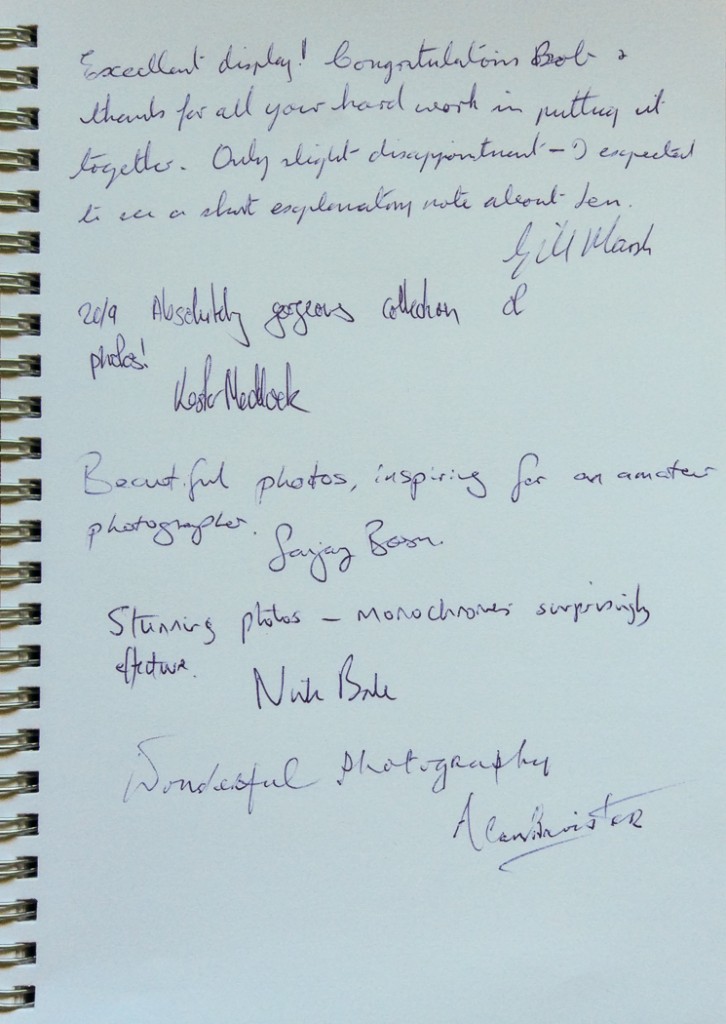 Excellent display! Congratulations Bob &
thanks for all your hard work in putting it
together. Only slight disappointment – I expected
to see a short explanatory note about Jen.
Gill Marsh
20/9 Absolutely gorgeous collection of
photos!
Maddock
Beautiful photos, inspiring for an amateur
photographer.
Sanjay
Stunning photos – monochromes surprisingly
effective.
Nick
Wonderful Photography
Alan